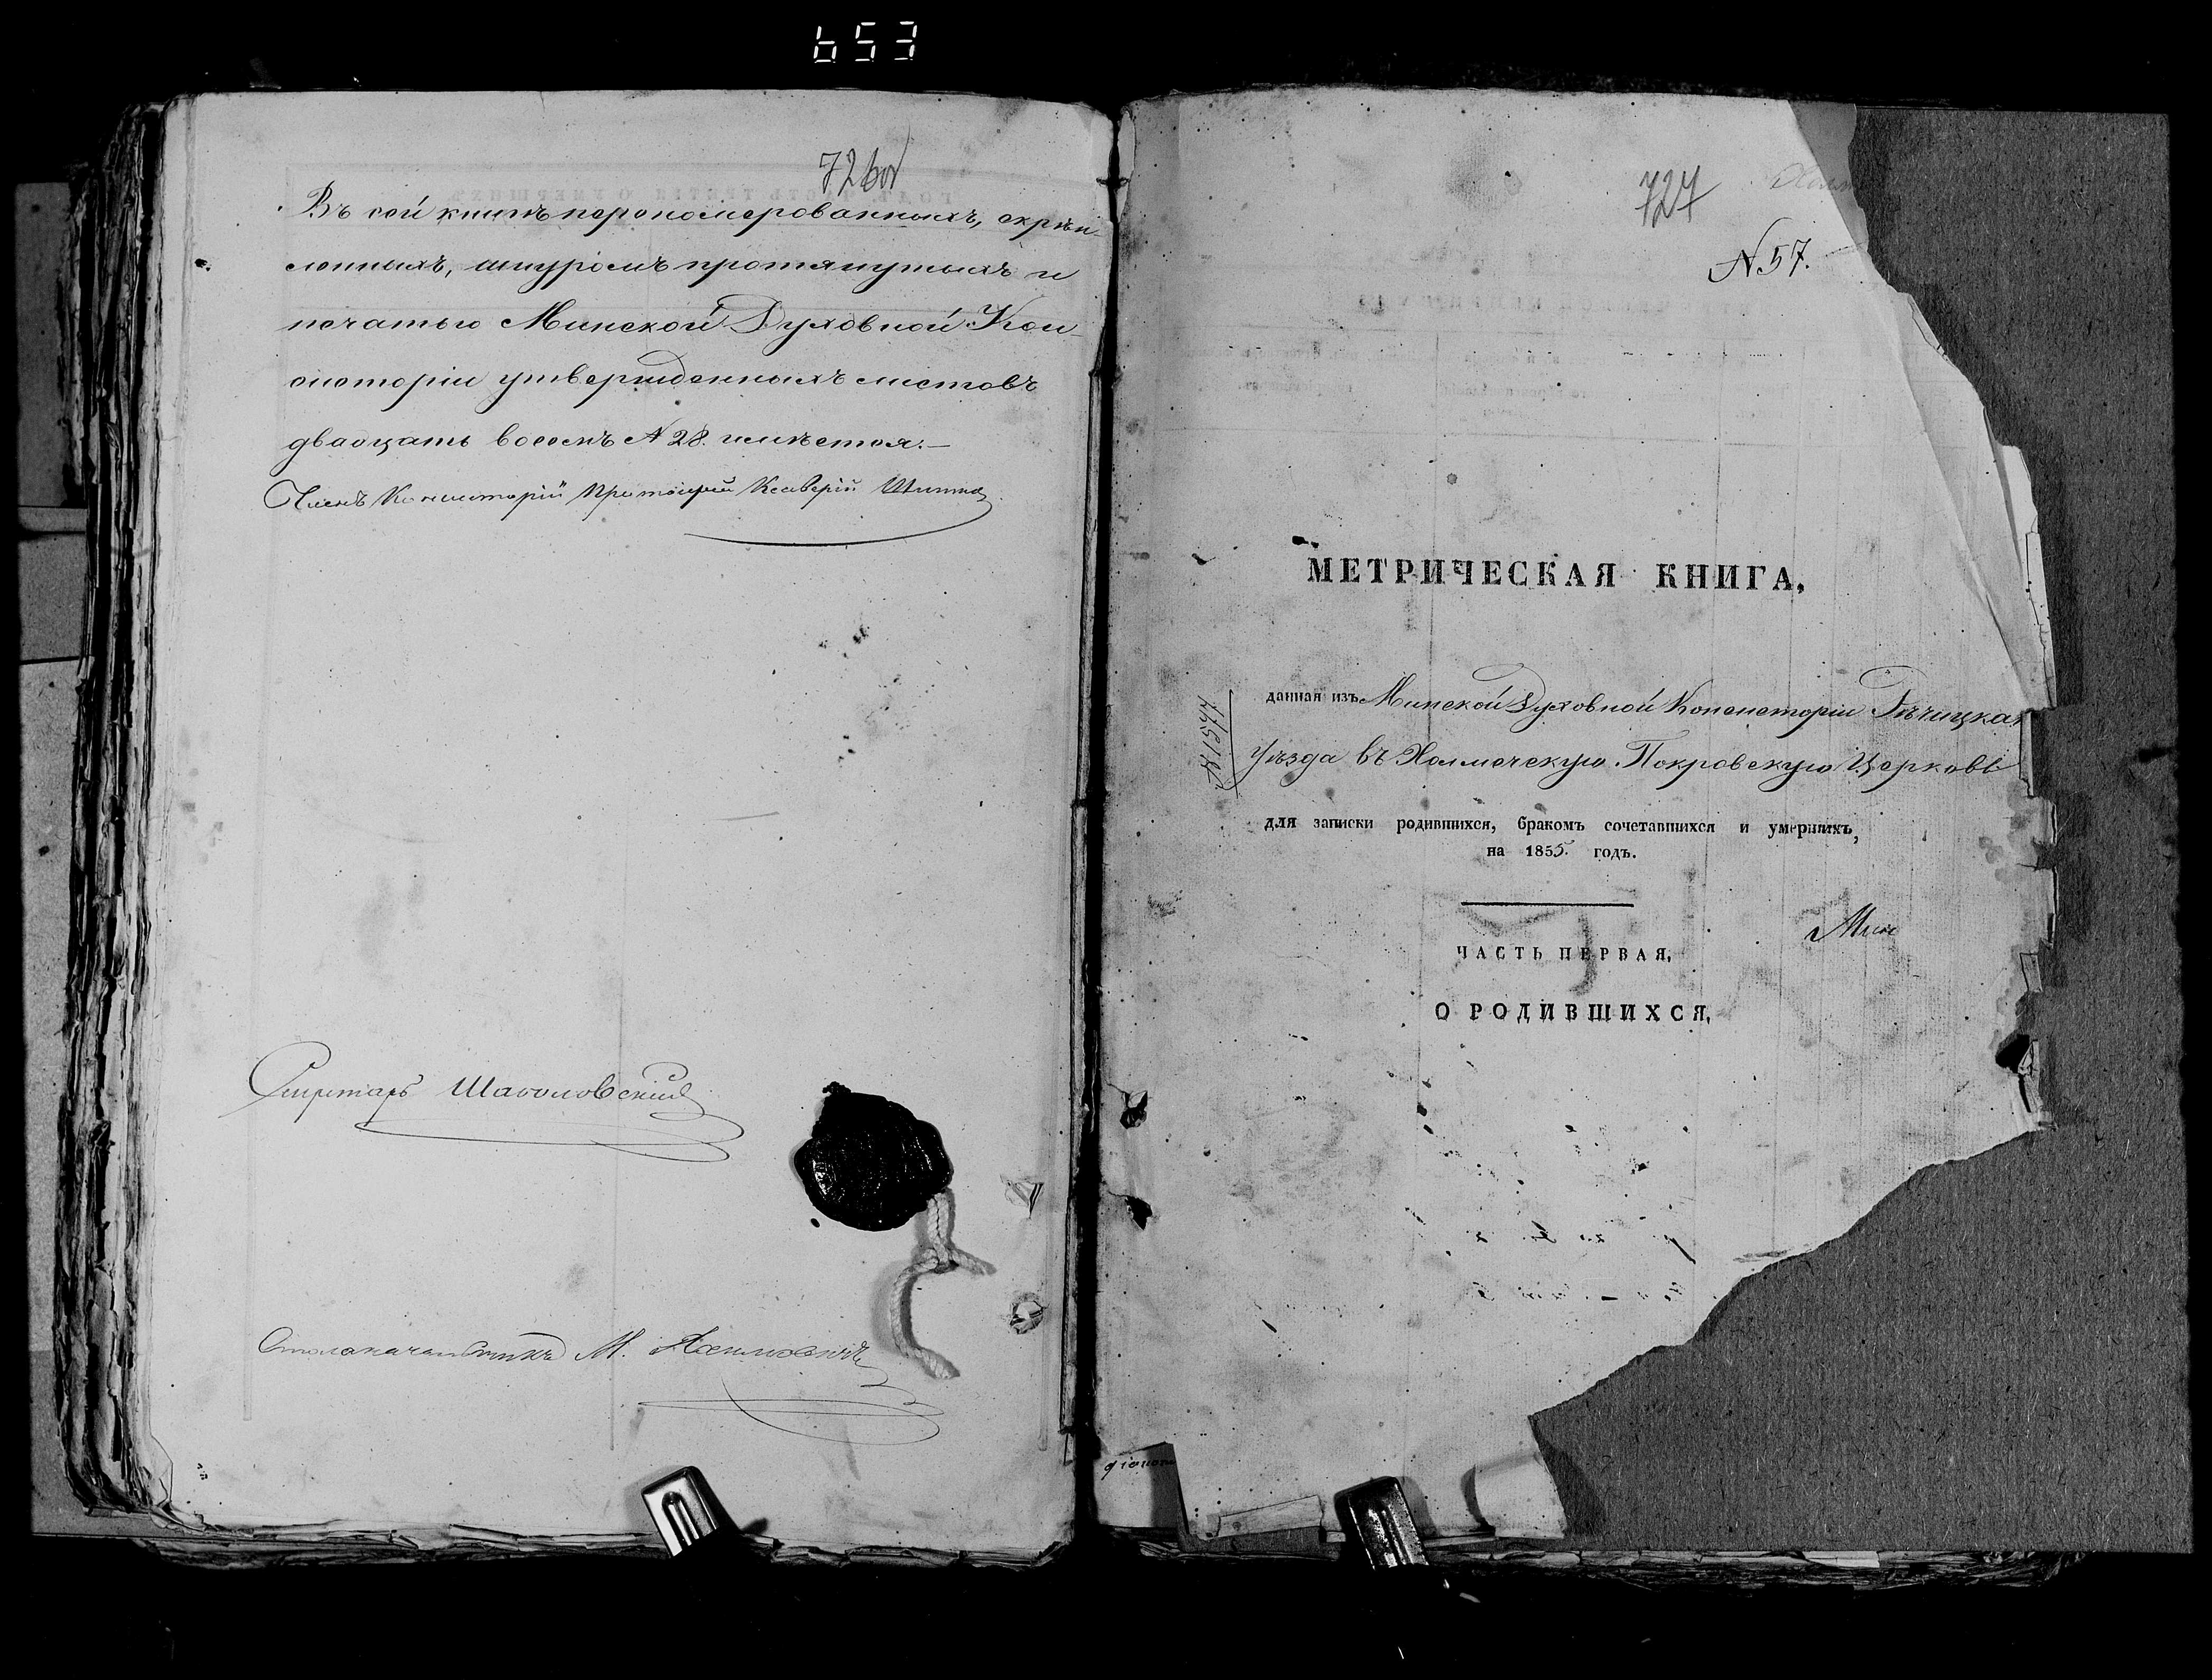 653
726об
Въ сей книгѣ перономерованныхъ, скрѣп-
ленныхъ, шнуромъ протянутыхъ и
печатью Минской Духовной Кон-
систоріи утвержденныхъ листовъ
двадцать восемь N 28. имѣется.—
Членъ Консисторіи Протоіерей Ксаверій
Секретарь
Столоначальникъ М.
727
N 57.
МЕТРИЧЕСКАЯ КНИГА,
данная изъ Минской Духовной Консисторіи Рѣчицкаго
уѣзда въ Холмечскую Покровскую Церковь
N 1577
для записки родившихся, бракомъ сочетавшихся и умершихъ,
на 1855 годъ.
Мин
ЧАСТЬ ПЕРВАЯ,
О РОДИВШИХСЯ,